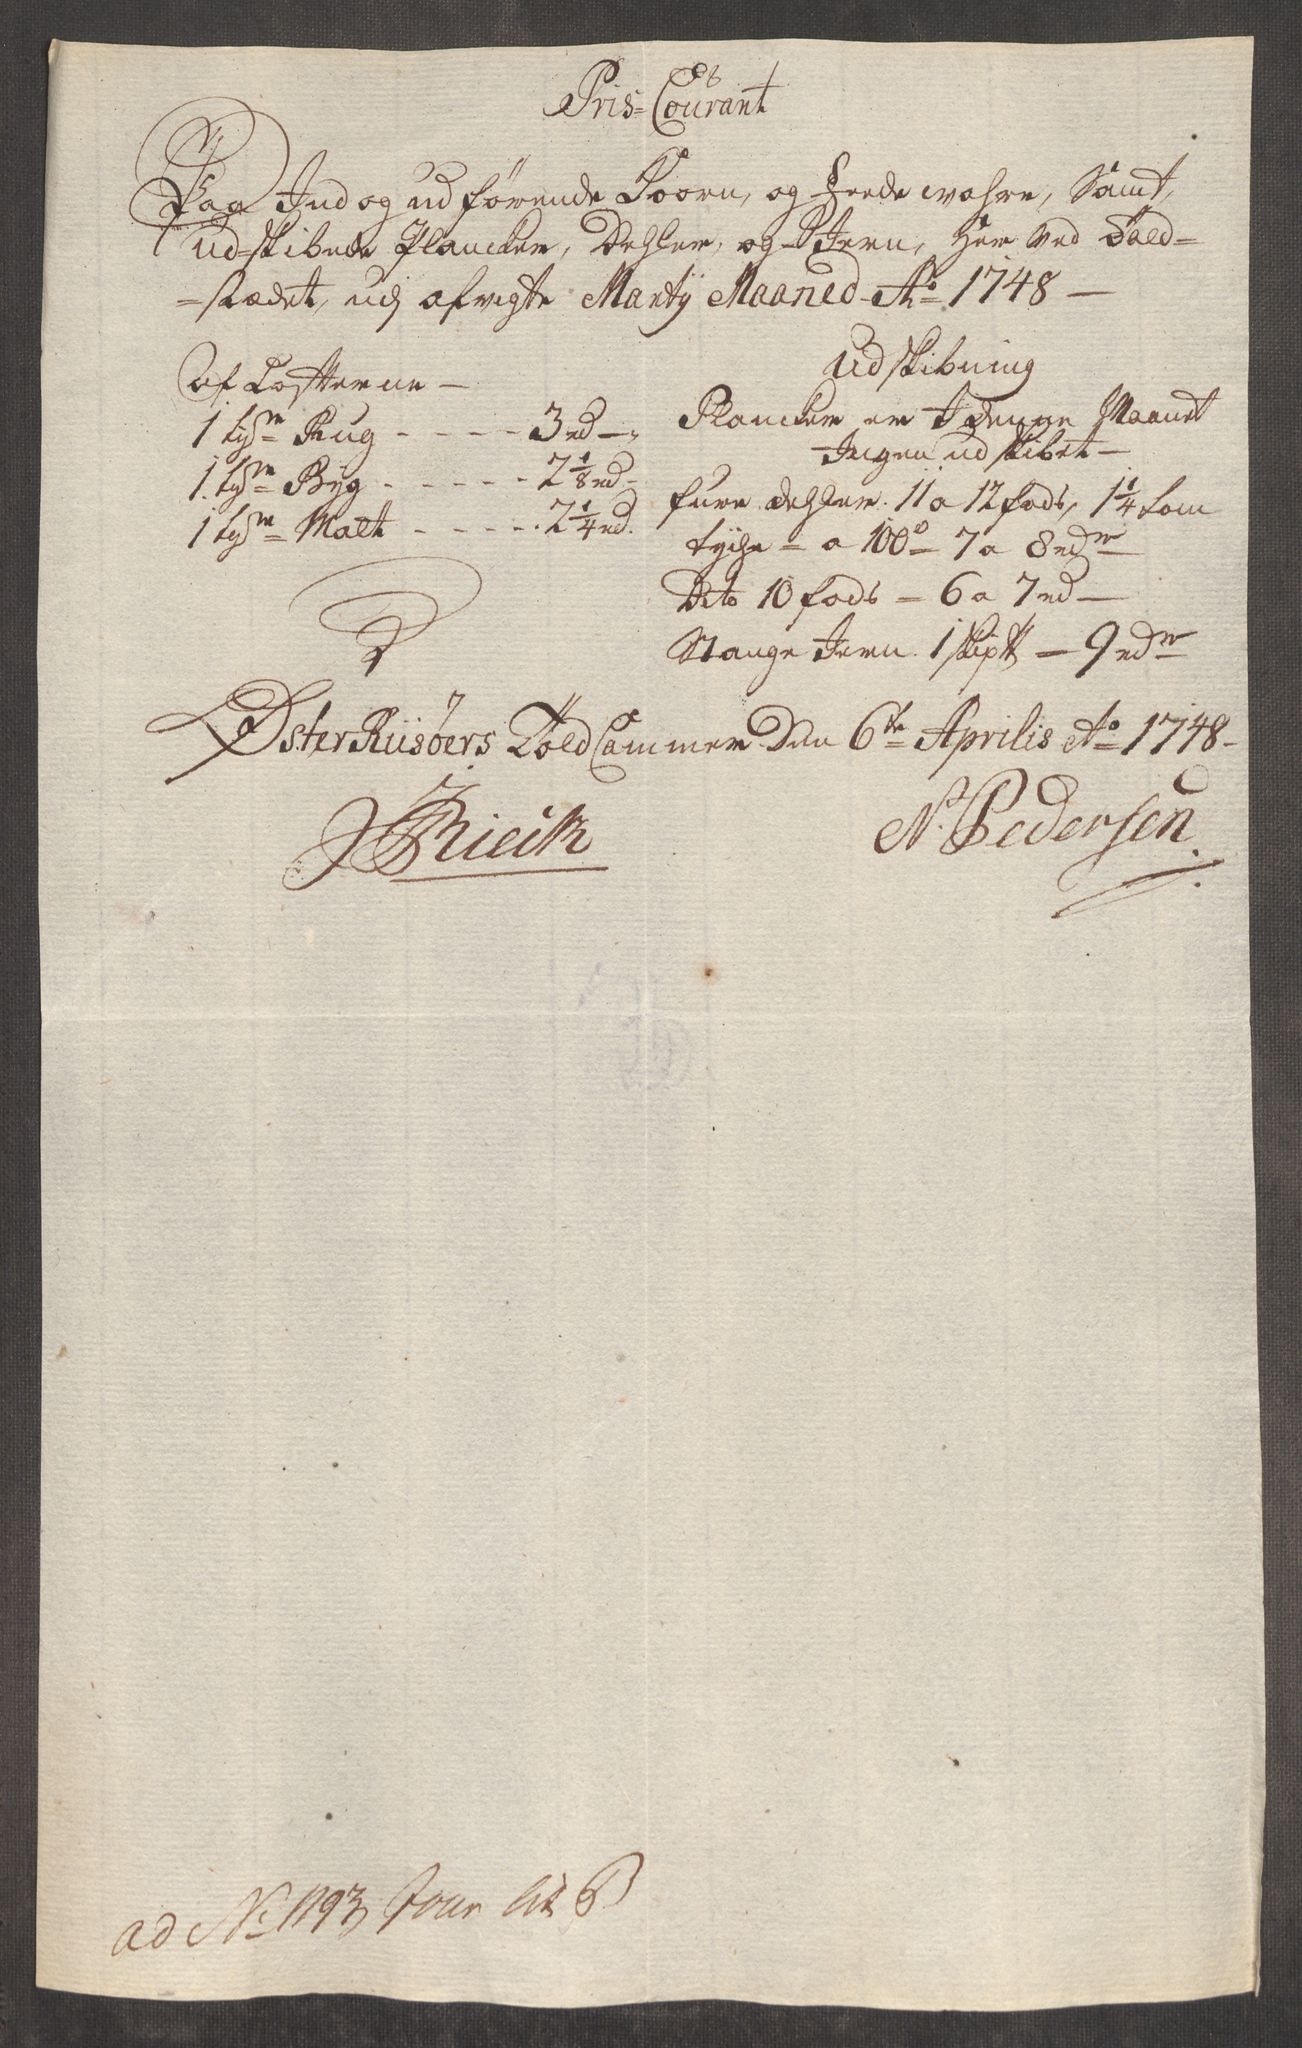 Pris-Courant
Paa Ind og udførende Koorn, og feede wahre, Samt,
Udskibede Plancker, Dehler, og Jern, her ved Told-
-stædet, udj afvigte Martij Maaned Ao 1748 —
af Kosterne —
1 tydr Rug - - - - 3 rd —
1 tydr Byg - - - - - 2 1/8 rd -
1 tydr Malt - - - - - 2 1/4 rd.
Udskibning
Plancker er I denne Maanet
Ingen udskibet —
furre dehler 11 a 12 fods, 1 1/4 tom
tyche - a 100d - 7 a 8 rdr
Dito 10 fods - 6 a 7 rd —
Stange Jern 1 skip℔ — 9 rdr
Øster Riisøers Told Cammer Den 6te Aprilis Ao 1748 -
N. Pedersen
ad No 1193 Jour lit B